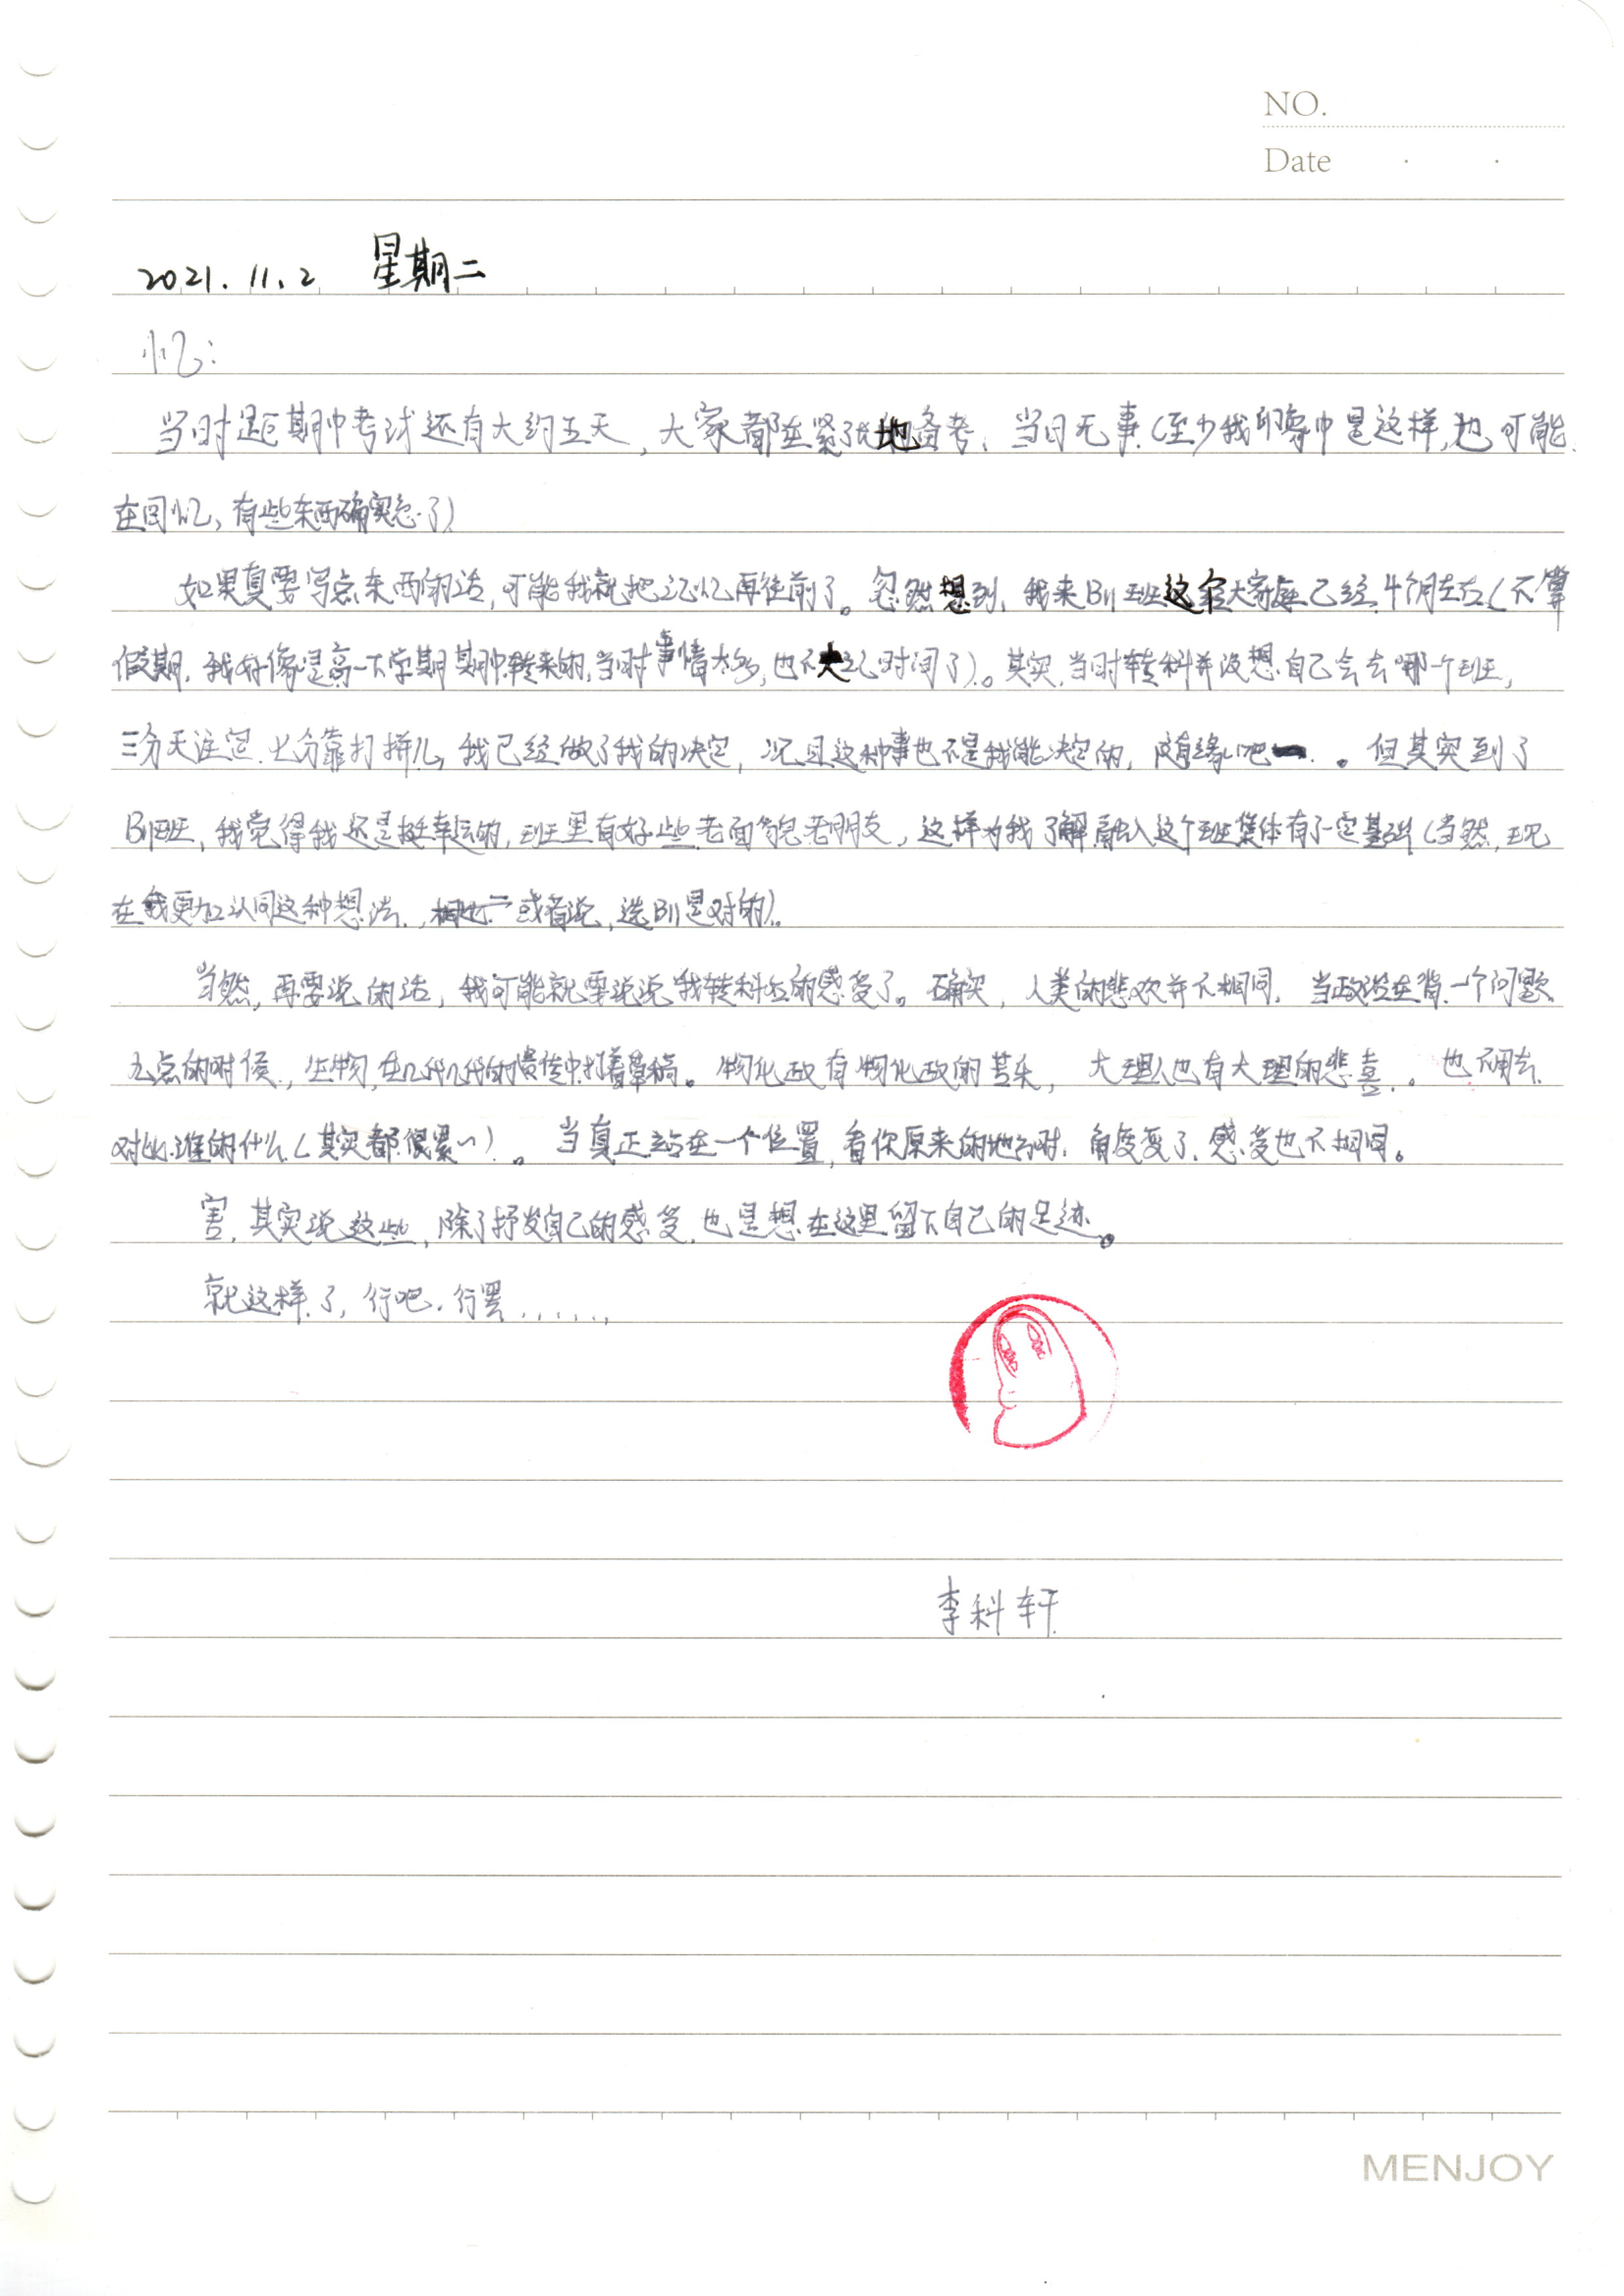 NO.
Date
2021.11.2 星期二
忆:
当时距期中考试还有大约五天,大家都在紧张地备考,当日无事(至少我印象中是这样,也可能
在回忆,有些东西确实忘了)
如果真要写点东西的话,可能我就把记忆再往前了。忽然想到,我来B11班这个大家庭已经4个月左右(不算
假期,我好像是高一下学期期中转来的,当时事情太多,也不大记时间了)。其实,当时转科并没想自己会去哪个班,
三分天注定,七分靠打拼儿,我已经做了我的决定,况且这种事也不是我能决定的,随缘吧。但其实到了
B11班,我觉得我还是挺幸运的,班里有好些老面貌老朋友,这样为我了解融入这个班集体有了一定基础(当然,现
在我更加认同这种想法,或者说,选B11是对的)。
当然,再要说的话,我可能就要说说我转科后的感受了。确实,人类的悲欢并不相同,当政治在背一个问题
九点的时候,生物,在几代几代的遗传中打着草稿。物化政有物化政的苦乐,大理也有大理的悲喜。也不用去
对比谁的什么(其实都很累~)。当真正站在一个位置,看你原来的地方时,角度变了,感受也不相同。
害,其实说这些,除了抒发自己的感受,也是想在这里留下自己的足迹。
就这样了,行吧,行罢......
李科轩
MENJOY